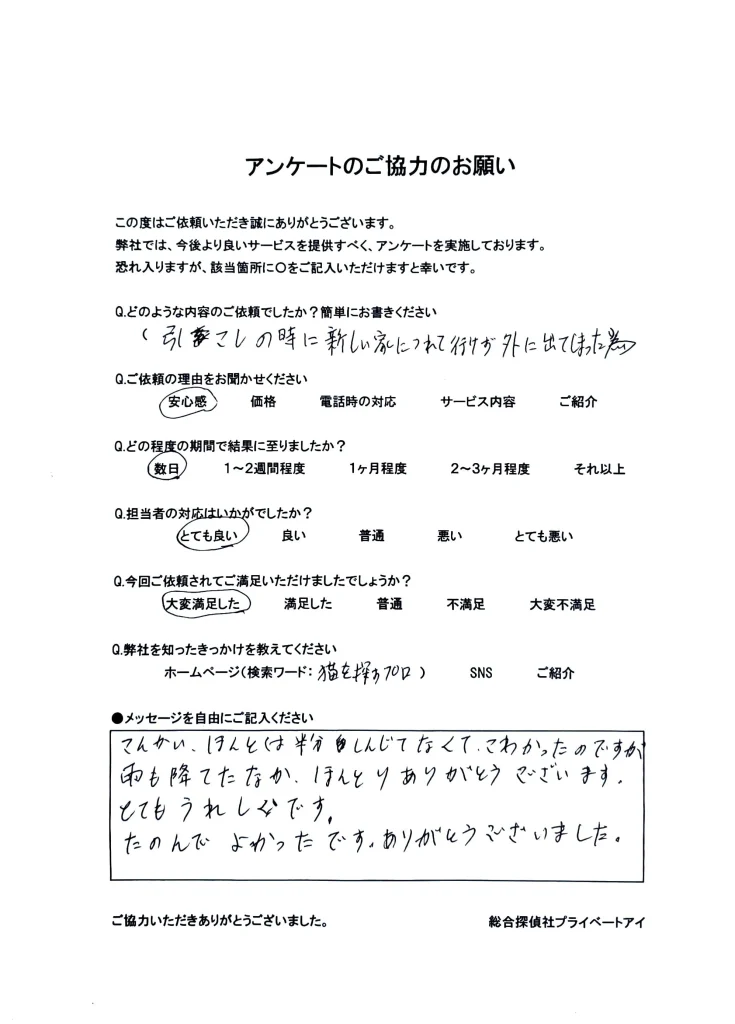 アンケートのご協力のお願い
この度はご依頼いただき誠にありがとうございます。
弊社では、今後より良いサービスを提供すべく、アンケートを実施しております。
恐れ入りますが、該当箇所に〇をご記入いただけますと幸いです。
Q.どのような内容のご依頼でしたか？簡単にお書きください
( 引越こしの時に新しい家につれて行けず外に出てしまった為)
Q.ご依頼の理由をお聞かせください
安心感 価格 電話時の対応 サービス内容 ご紹介
Q.どの程度の期間で結果に至りましたか？
数日 1～2週間程度 1ヶ月程度 2～3ヶ月程度 それ以上
Q.担当者の対応はいかがでしたか？
とても良い 良い 普通 悪い とても悪い
Q.今回ご依頼されてご満足いただけましたでしょうか？
大変満足した 満足した 普通 不満足 大変不満足
Q.弊社を知ったきっかけを教えてください
ホームページ(検索ワード: 猫を探すプロ ) SNS ご紹介
●メッセージを自由にご記入ください
こんかい、ほんとは半分しんじてなくて、こわかったのですが
雨も降てたなか、ほんとりありがとうございます。
とてもうれしくです。
たのんでよかったです。ありがとうございました。
ご協力いただきありがとうございました。
総合探偵社プライベートアイ